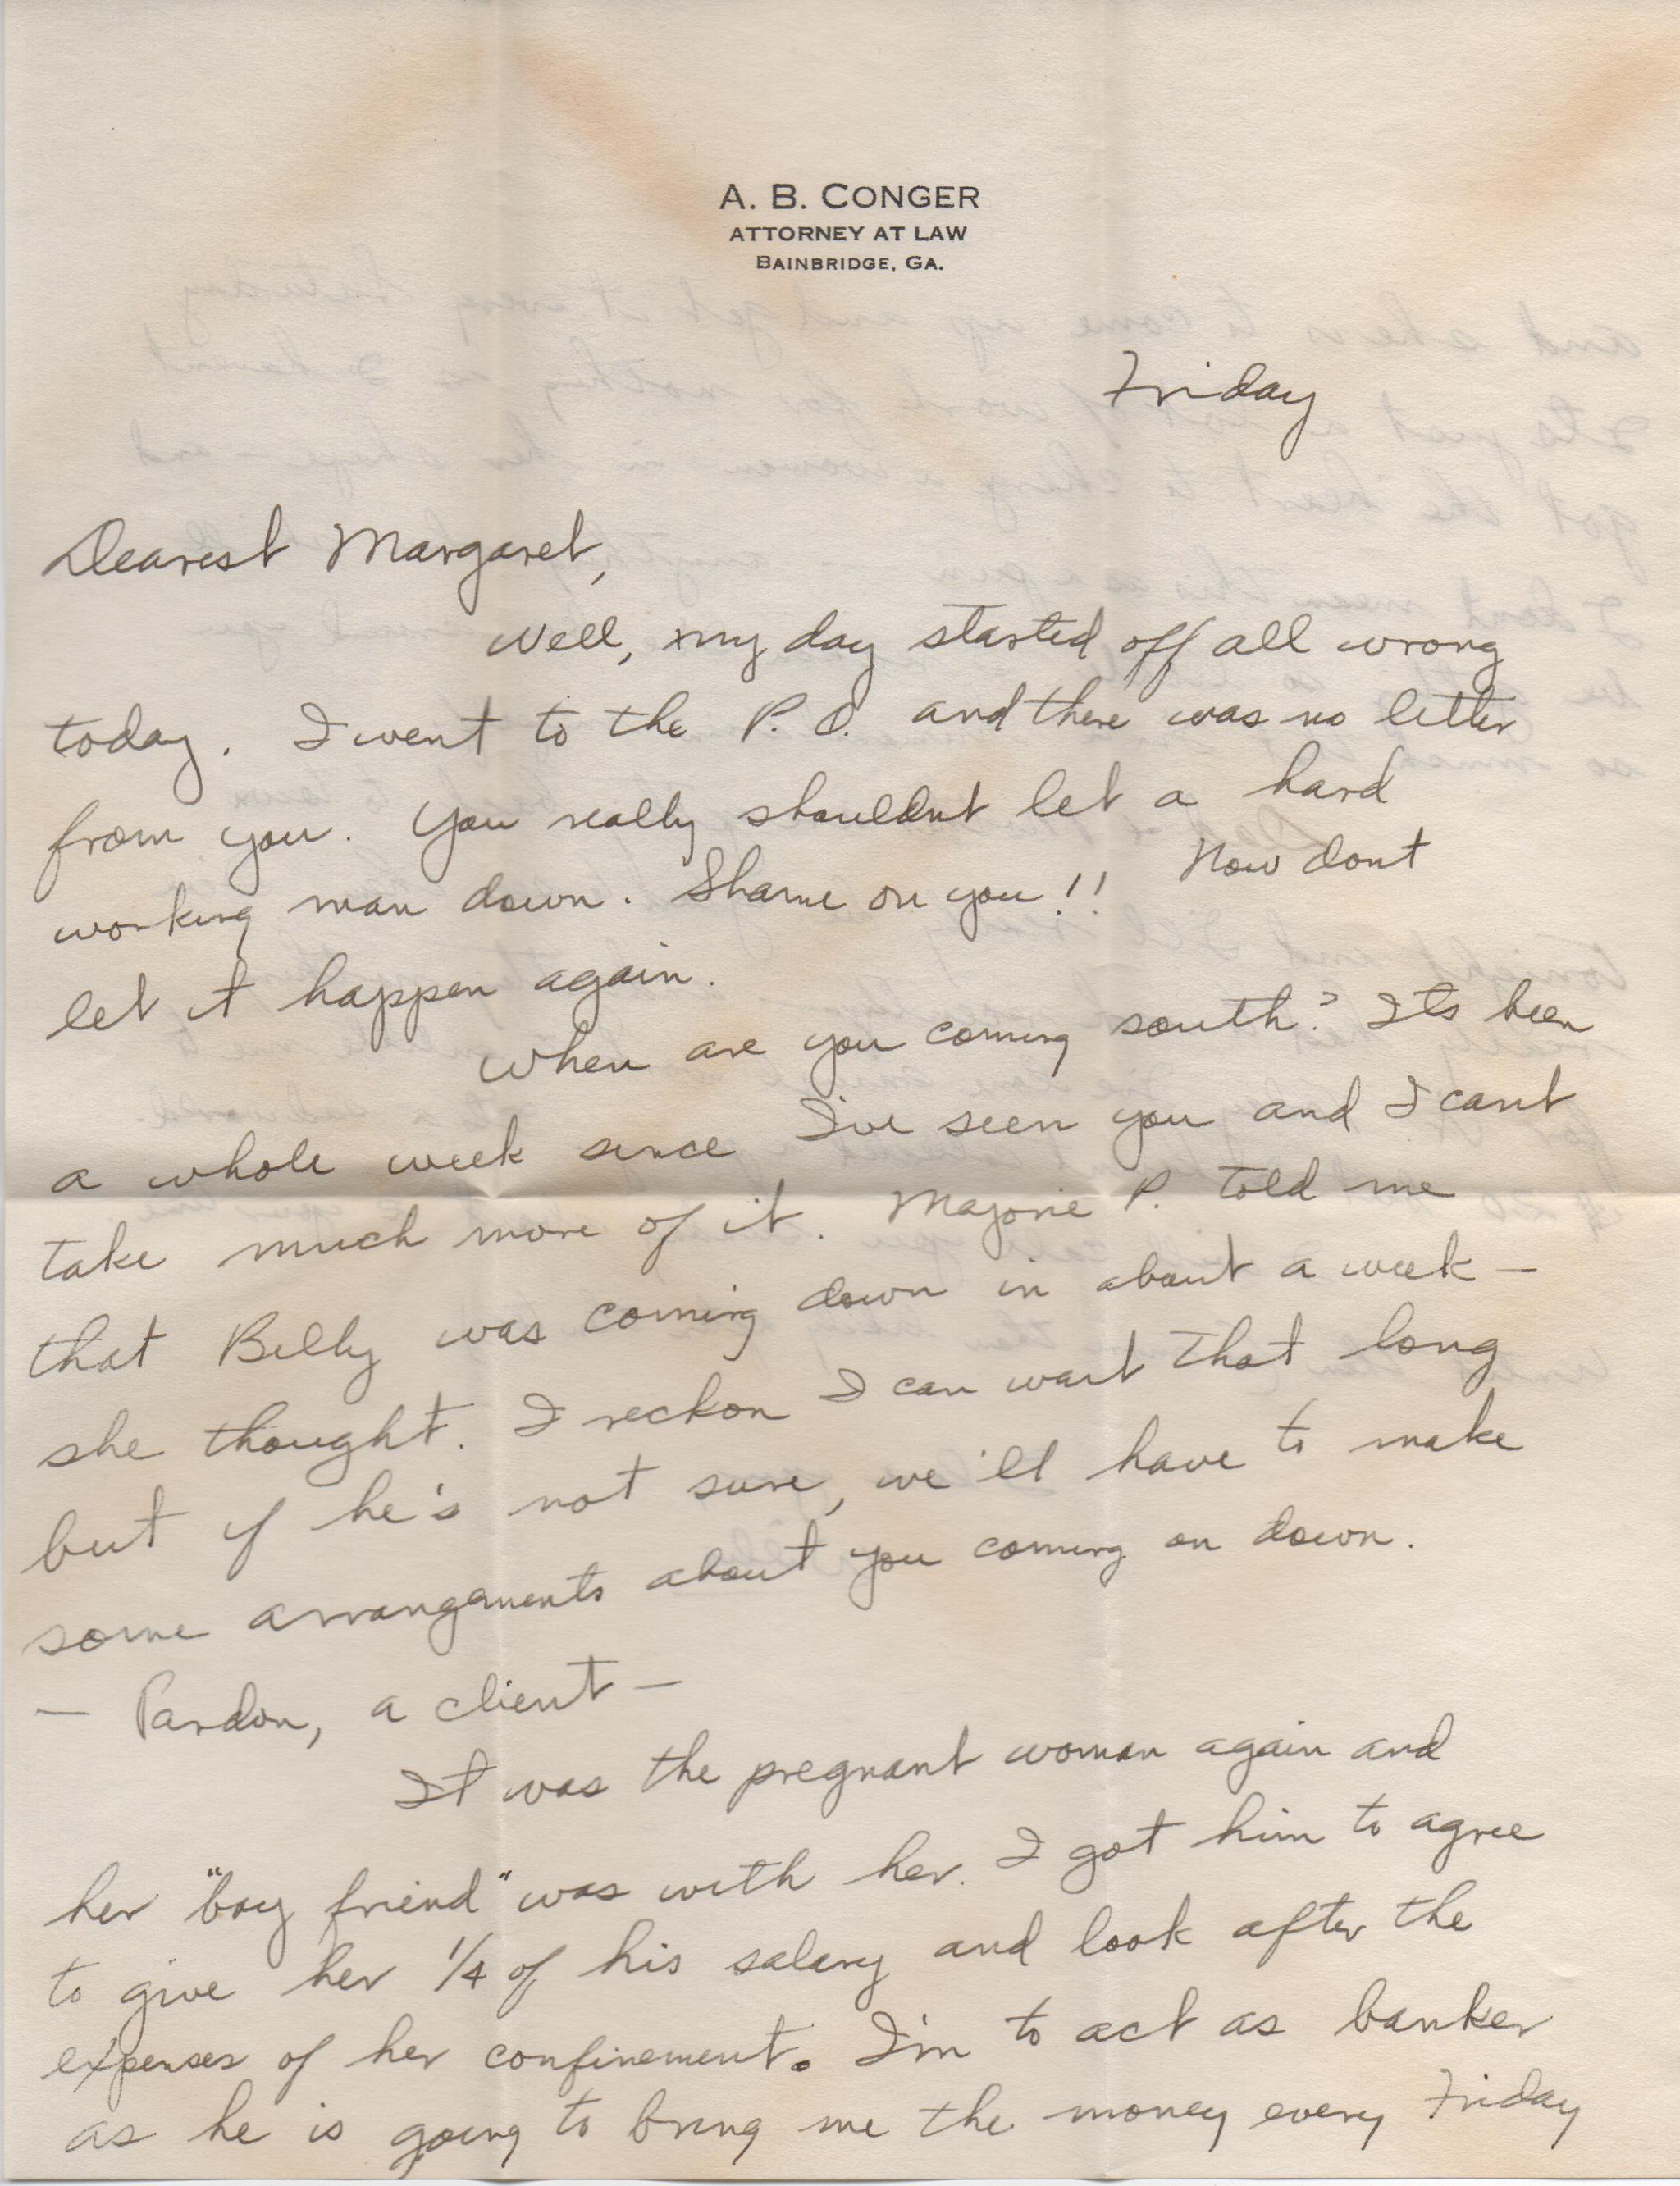 A. B. CONGER
ATTORNEY AT LAW
BAINBRIDGE, GA.
Friday
Dearest Margaret,
Well, my day started off all wrong
today. I went to the P.O. and there was no letter
from you. You really shouldnt let a hard
working man down. Shame on you!! Now dont
let it happen again.
When are you coming south? Its been
a whole week since I've seen you and I cant
take much more of it. Majorie P. told me
that Billy was coming down in about a week —
she thought. I reckon I can wait that long
but if he's not sure, we'll have to make
some arrangements about you coming on down.
— Pardon, a client —
It was the pregnant woman again and
her "boy friend" was with her. I got him to agree
to give her 1/4 of his salary and look after the
expenses of her confinement. I'm to act as banker
as he is going to bring me the money every Friday